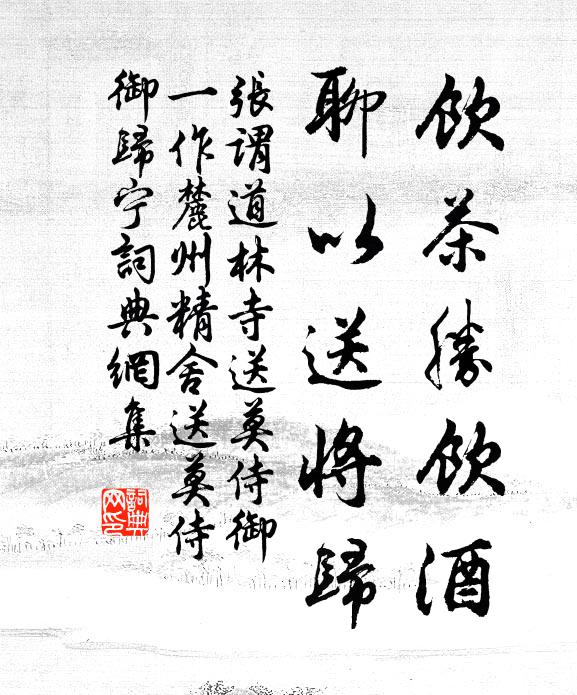 飲茶勝飲酒
聊以送將歸
張謂道林寺送莫侍御
一作麓州精舍送莫侍
御歸宁詞典網集
詞典
网印